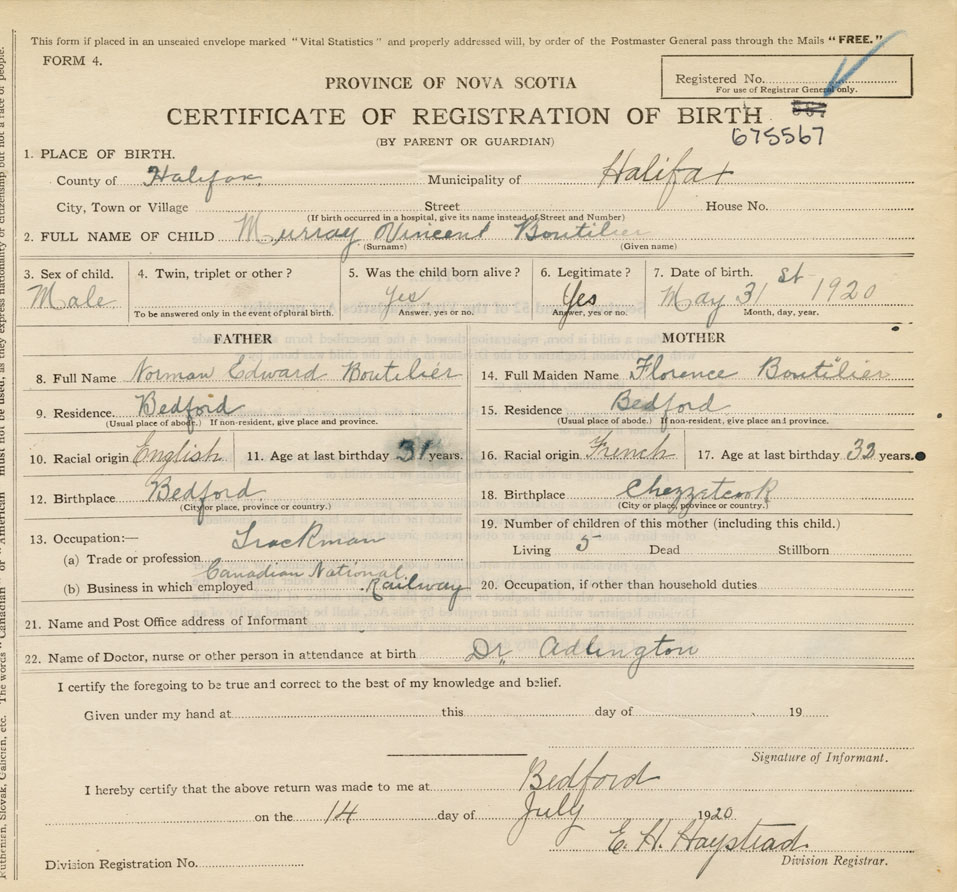 This form if placed in an unsealed envelope marked "Vital Statistics" and properly addressed will, by order of the Postmaster General pass through the Mails "FREE."
FORM 4.
Registered No.
For use of Registrar General only.
PROVINCE OF NOVA SCOTIA
CERTIFICATE OF REGISTRATION OF BIRTH
675567
(BY PARENT OR GUARDIAN)
1. PLACE OF BIRTH.
County of Halifax, Municipality of Halifax
City, Town or Village Street House No.
(If birth occurred in a hospital, give its name instead of Street and Number)
2. FULL NAME OF CHILD Murray Vincent Boutilier
(Surname) (Given name)
3. Sex of child. 4. Twin, triplet or other? 5. Was the child born alive? 6. Legitimate? 7. Date of birth.
Male Yes Yes May 31st 1920
To be answered only in the event of plural birth. Answer, yes or no. Answer, yes or no. Month, day, year.
FATHER MOTHER
8. Full Name Norman Edward Boutilier 14. Full Maiden Name Florence Boutilier
9. Residence. Bedford 15. Residence Bedford
(Usual place of abode.) If non-resident, give place and province. (Usual place of abode.) If non-resident, give place and province.
10. Racial origin English 11. Age at last birthday 31 years. 16. Racial origin French 17. Age at last birthday 33 years.
12. Birthplace Bedford 18. Birthplace Chezzetcook
(City or place, province or country.) (City or place, province or country.)
13. Occupation:— 19. Number of children of this mother (including this child.)
(a) Trade or profession Trackman Living 5 Dead Stillborn
(b) Business in which employed Canadian National Railway 20. Occupation, if other than household duties
21. Name and Post Office address of Informant
22. Name of Doctor, nurse or other person in attendance at birth Dr. Adlington
I certify the foregoing to be true and correct to the best of my knowledge and belief.
Given under my hand at this day of 19
Signature of Informant.
I hereby certify that the above return was made to me at Bedford
on the 14 day of July 1920
E. H. Haystead
Division Registration No. Division Registrar.